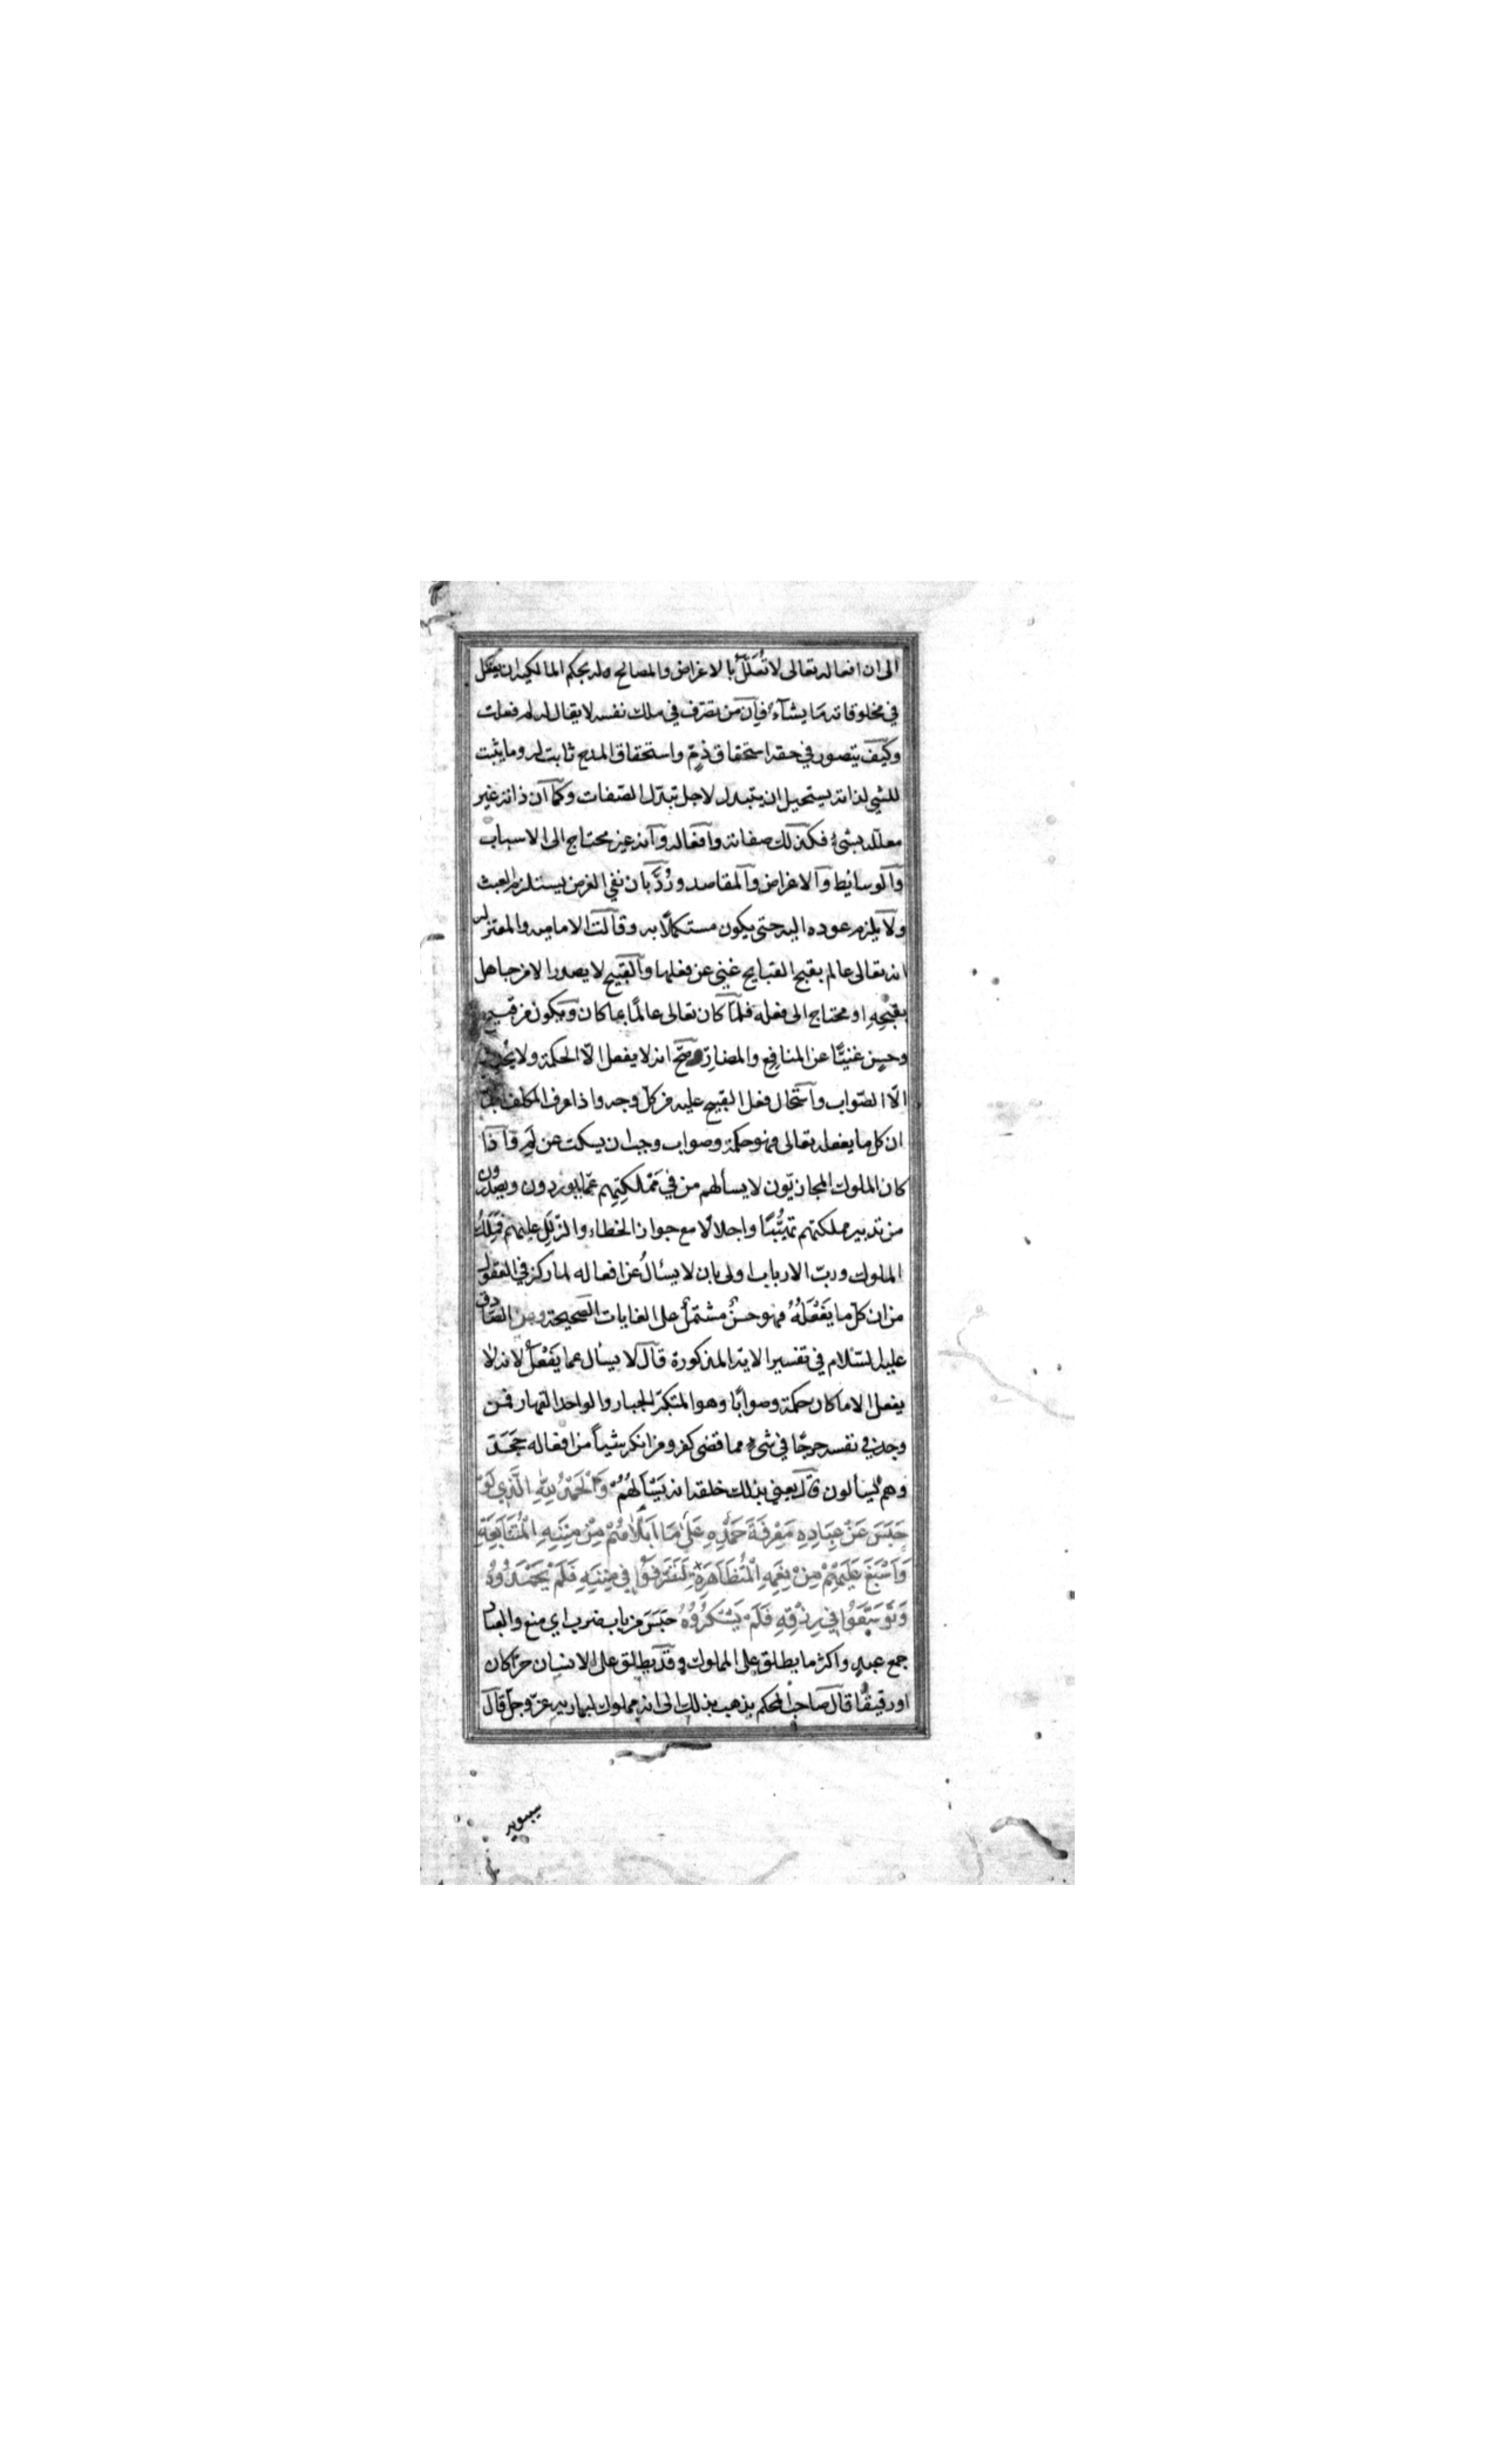 الى ان افعاله تعالى لا تُعَلَّلُ بالاغراض والمصالح وله بحكم المالكية ان يفعل
في مخلوقاته مَا يشآءُ فاِن من تصرّف في ملك نفسه لا يقال له لم فعلت
وكيف يتصور في حقه استحقاق ذمٍّ واستحقاق المدح ثابت له وما يثبت
للشي لذاته يستحيل ان يتبدل لاجل تبدّل الصّفات وكما ان ذاته غير
معلّله بشئ فكذلك صفاته وافعاله وانه غير محتاج الى الاسباب
والوسائط والاغراض والمقاصد ورُدَّ بان نفي الغرض يستلزم العبث
ولا يلزم عوده اليه حتى يكون مستكملًا به وقالت الاماميه والمعتزله
انه تعالى عالم بقبح القبايح غني عن فعلها والقبيح لا يصدر الا من جاهل
بقبحهِ او محتاج الى فعله فلما كان تعالى عالمًا بما كان ويكون من قبيح
وحسن غنيًّا عن المنافع والمضارّ صحّ انه لا يفعل الّا الحكمة ولا
الّا الصّواب واستحال فعل القبيح عليه من كل وجه واذا عرف المكلف
ان كل ما يفعله تعالى فهو حكمة وصواب وجب ان يسكت عن لِمَ واذا
كان الملوك المجازيّون لا يسألهم من في مَمْلكتِهم عمّا يوردون ويصدرون
من تدبير مملكتهم تهيُّبًا واجلالًا مع جواز الخطاء والزّلل عليهم فمَلِكُ
الملوك وربّ الارباب اولى بان لا يسئالُ عن افعاله لما ركز في العقول
من ان كل ما يَفْعَلُهُ فهو حسنٌ مشتملٌ على الغايات الصّحيحة وعن الصّادق
عليه السّلام في تفسير الايه المذكورة قال لا يسأل عما يَفْعَلُ لانه لا
يفعل الا ما كان حكمة وصوابًا وهو المتكبّر الجبار والواحد القهار فمن
وجد في نفسه حرجًا في شئ مما قضى كفر ومن انكر شيأً من افعاله جَحَدَ
وهم يُسألون قال يعني بذلك خلقه انه يَسْألهُمْ وَالْحَمْدُ لِلّهِ الَّذِي لَوْ
حَبَسَ عَنْ عِبَادِهِ مَعْرِفَةَ حَمْدِهِ عَلىٰ مَا اَبْلَاهُمْ مِنْ مِنَنِهِ الْمُتَتَابِعَةِ
وَاَسْبَغَ عَلَيْهِمْ مِنْ نِعَمِهِ الْمُتَظَاهِرَةِ لَتَصَرَّفُوا فِي مِنَنِهِ فَلَمْ يَحْمَدُوهُ
وَتَوَسَّعُوا فِي رِزْقِهِ فَلَمْ يَشْكُرُوهُ حَبَسَ من باب ضرب اي منع والعباد
جمع عبد واكثر ما يطلق على المملوك وقد يطلق على الانسان حرّا كان
او رقيقًا قال صاحب المحكم يذهب بذلك الى انه مملوك لباريه عزّ وجلّ قال
سيبويه